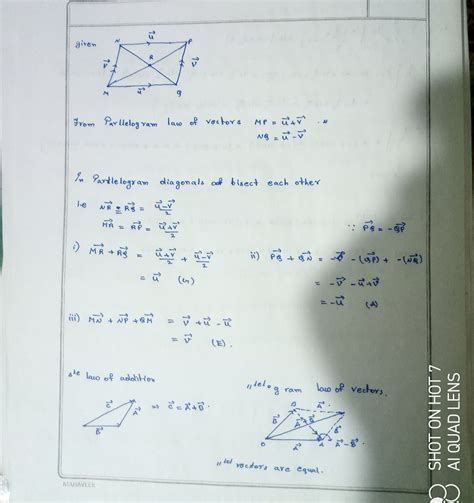 given
N u⃗ P
v⃗ R v⃗
M u⃗ Q
From Parllelogram law of vectors MP = u⃗+v⃗
NQ = u⃗-v⃗
In Parllelogram diagonals bisect each other
NR = RQ = u⃗-v⃗/2
MR = RP = u⃗+v⃗/2 ∵ PQ = -QP
i) MR + RQ = u⃗+v⃗/2 + u⃗-v⃗/2 ii) PQ + QN = -(QP) + -(NQ)
= u⃗ = -v⃗ - u⃗+v⃗
= -u⃗ (A)
iii) MN + NP + QM = v⃗ + u⃗ - u⃗
= v⃗ (E).
law of addition gram law of vectors.
C⃗ A⃗ B⃗ ⇒ C⃗ = A⃗+B⃗
vectors are equal.
MAHAVEER
SHOT ON HOT 7
AI QUAD LENS